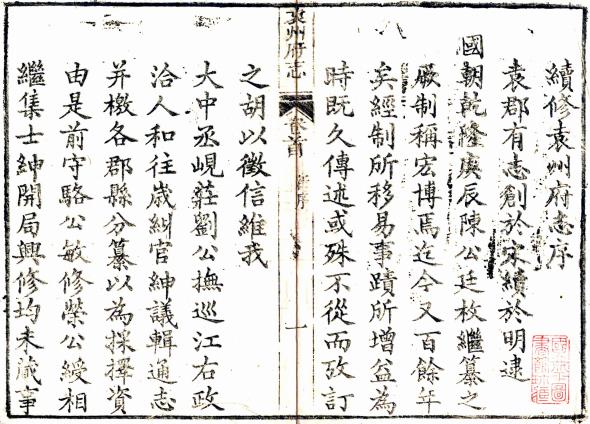 續修袁州府志序
袁郡有志創於宋續於明逮
國朝乾隆庚辰陳公廷枚繼纂之
厥制稱宏博焉迄今又百餘年
矣經制所移易事蹟所增益為
時既久傳述或殊不從而攷訂
袁州府志
卷首
序
一
之胡以徵信維我
大中丞峴莊劉公撫巡江右政
洽人和往歲糾官紳議輯通志
并檄各郡縣分纂以為採擇資
由是前守駱公敏修榮公綬相
繼集士紳開局興修均未蕆事